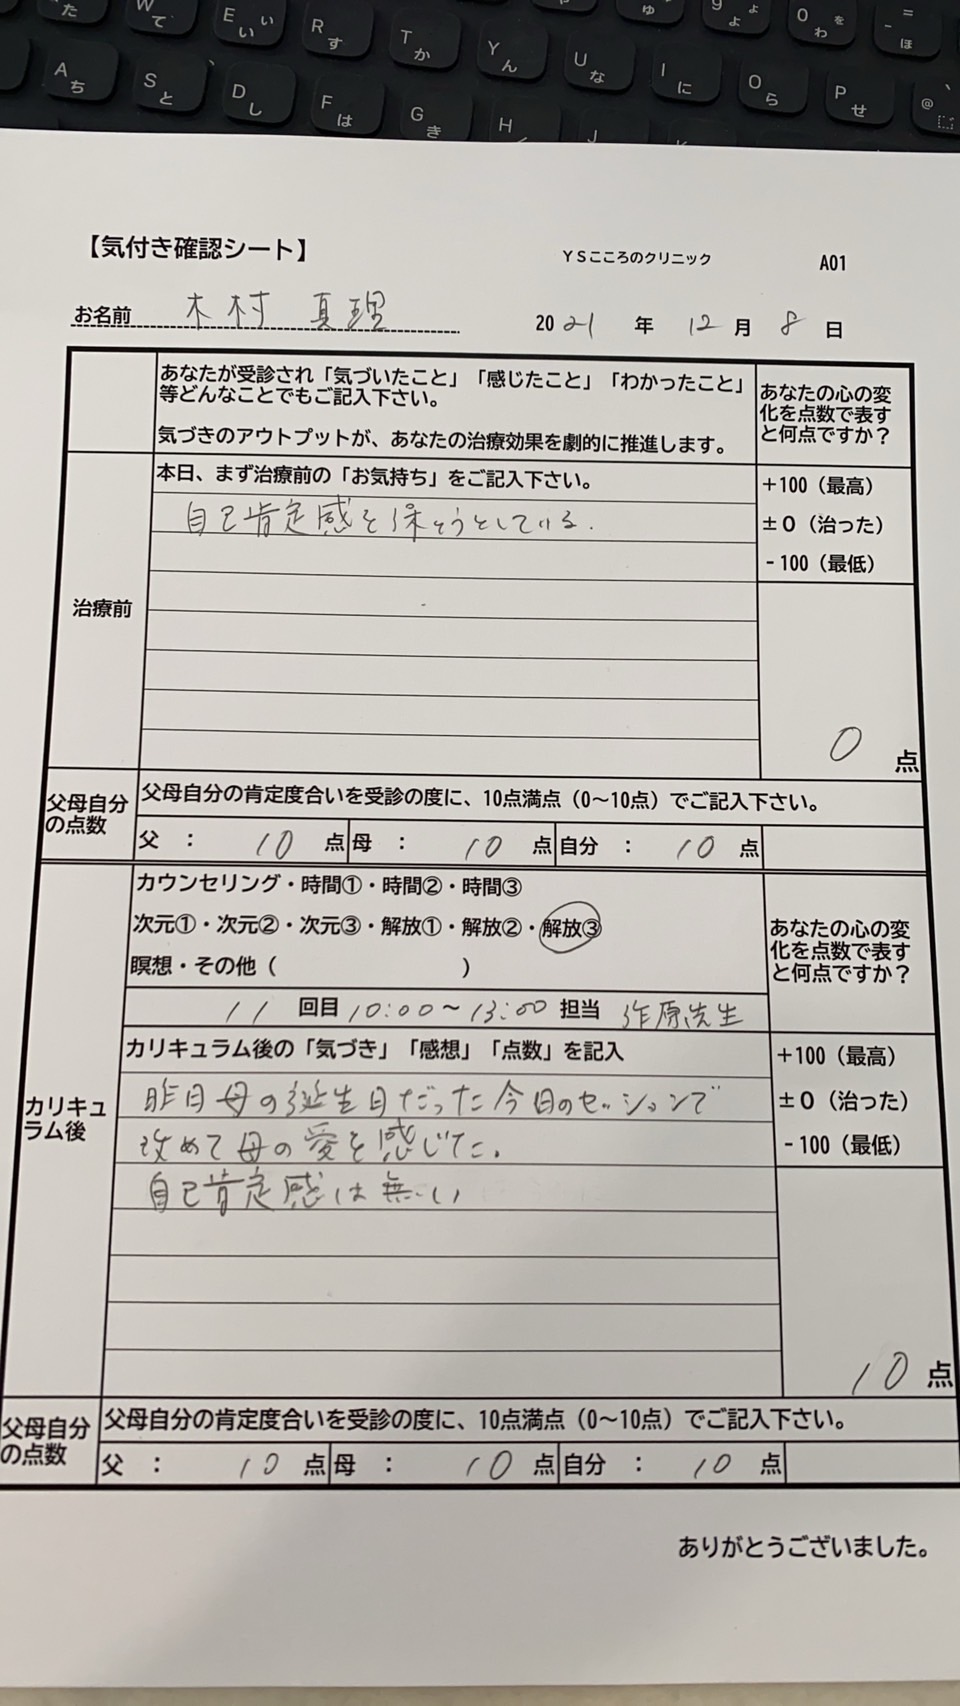 W て E い い R す T か Y ん U な ゅ 9 ょ よ 0 を わ = - ほ
A ち S と D し F は G き H J I に O ら P せ @
【気付き確認シート】 YSこころのクリニック A01
お名前 木村 真理 2021 年 12 月 8 日
あなたが受診され「気づいたこと」「感じたこと」「わかったこと」
等どんなことでもご記入下さい。
気づきのアウトプットが、あなたの治療効果を劇的に推進します。
あなたの心の変
化を点数で表す
と何点ですか？
治療前
本日、まず治療前の「お気持ち」をご記入下さい。
自己肯定感を保そうとしている.
+100（最高）
±0（治った）
-100（最低）
0 点
父母自分
の点数
父母自分の肯定度合いを受診の度に、10点満点（0～10点）でご記入下さい。
父 ： 10 点 母 ： 10 点 自分 ： 10 点
カリキュ
ラム後
カウンセリング・時間①・時間②・時間③
次元①・次元②・次元③・解放①・解放②・解放③
瞑想・その他（ ）
11 回目 10:00～13:00 担当 原先生
カリキュラム後の「気づき」「感想」「点数」を記入
昨日母の誕生日だった今日のセッションで
改めて母の愛を感じた.
自己肯定感は無い
あなたの心の変
化を点数で表す
と何点ですか？
+100（最高）
±0（治った）
-100（最低）
10 点
父母自分
の点数
父母自分の肯定度合いを受診の度に、10点満点（0～10点）でご記入下さい。
父 ： 10 点 母 ： 10 点 自分 ： 10 点
ありがとうございました。